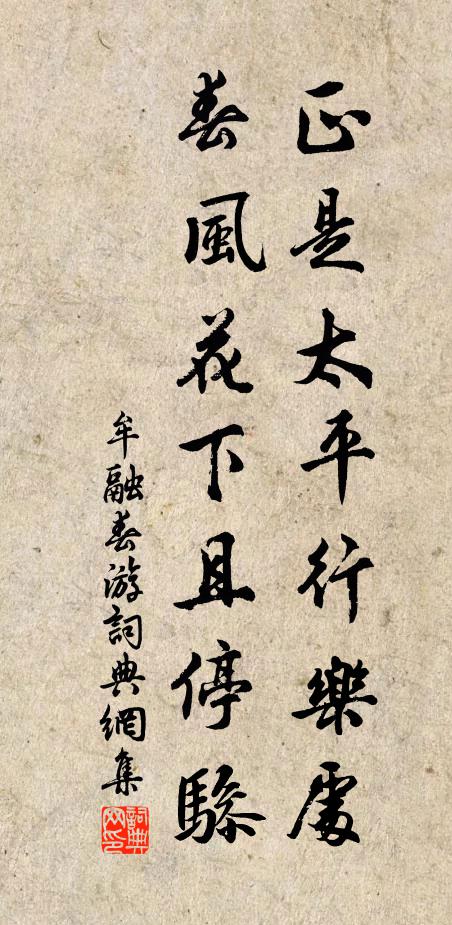 正是太平行樂處
春風花下且停驂
牟融春游詞典網集
詞典网印